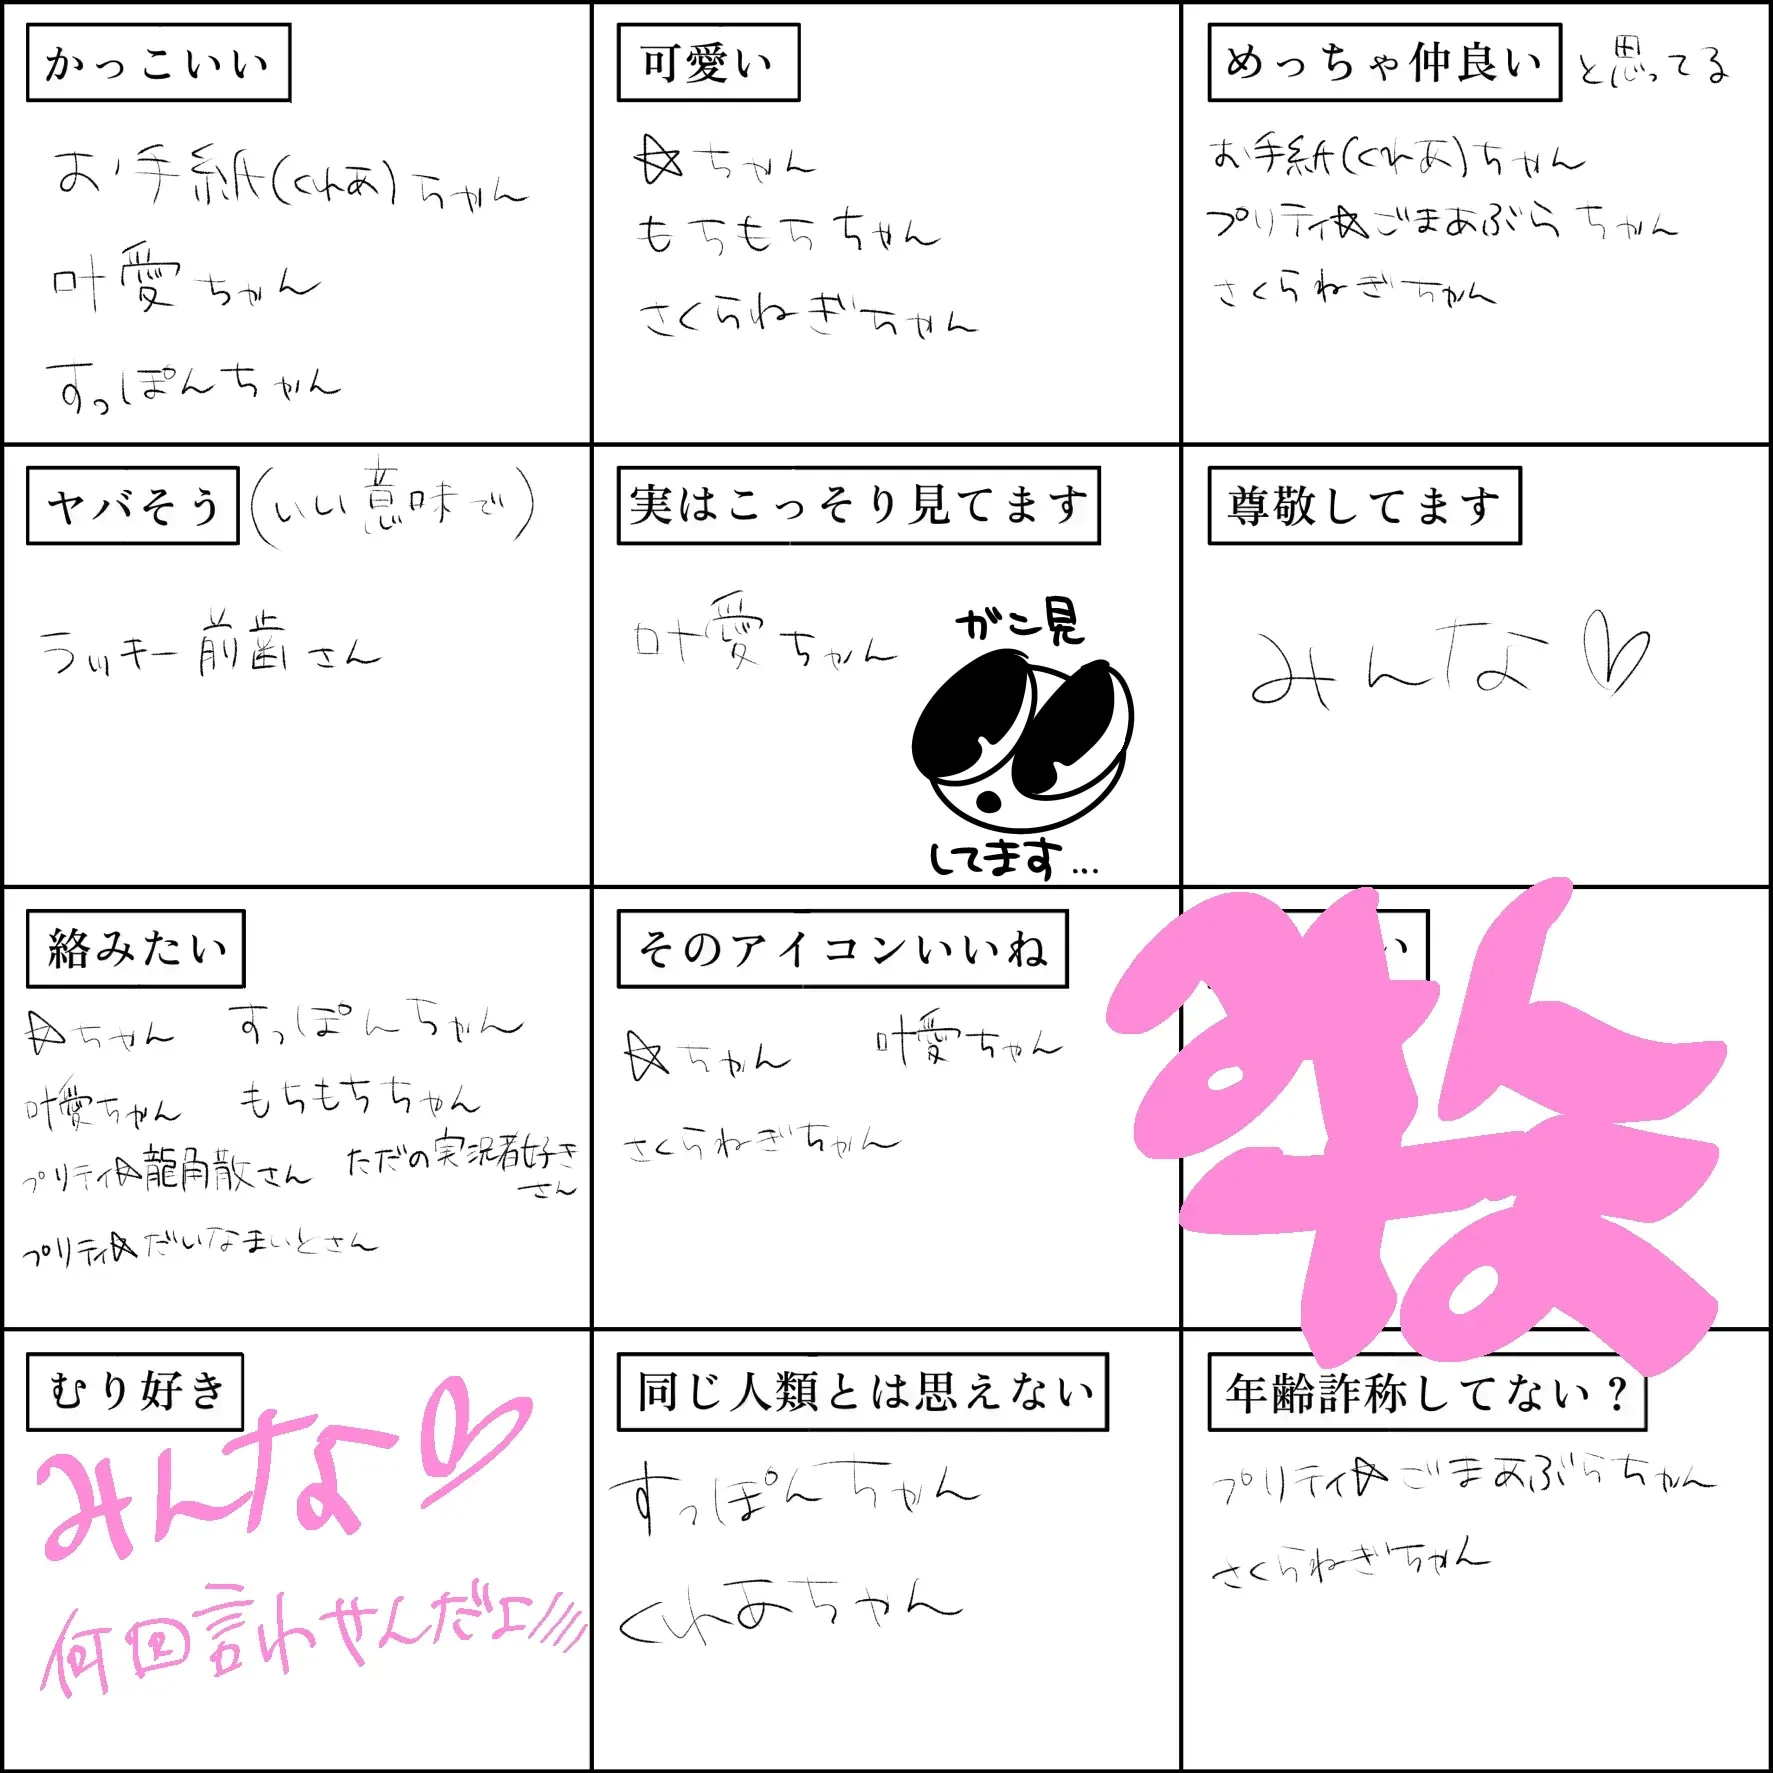 かっこいい
お手紙(くれあ)ちゃん
叶愛ちゃん
すっぽんちゃん
可愛い
☆ちゃん
もちもちちゃん
さくらねぎちゃん
めっちゃ仲良い と思ってる
お手紙(くれあ)ちゃん
プリティ☆ごまあぶらちゃん
さくらねぎちゃん
ヤバそう (いい意味で)
ラッキー前歯さん
実はこっそり見てます
叶愛ちゃん
ガン見
してます...
尊敬してます
みんな♡
絡みたい
☆ちゃん すっぽんちゃん
叶愛ちゃん もちもちちゃん
プリティ☆龍角散さん ただの実況者好き
さん
プリティ☆だいなまいとさん
そのアイコンいいね
☆ちゃん 叶愛ちゃん
さくらねぎちゃん
い
みんな
むり好き
みんな♡
何回言わせんだよ////
同じ人類とは思えない
すっぽんちゃん
くれあちゃん
年齢詐称してない？
プリティ☆ごまあぶらちゃん
さくらねぎちゃん